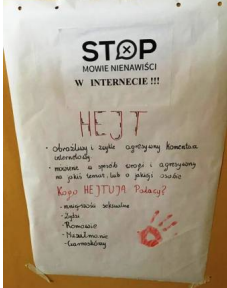 STOP
MOWIE NIENAWIŚCI
W INTERNECIE !!!
HEJT
- obraźliwy i zwykle agresywny komentarz
internetowy
- mówienie w sposób wrogi i agresywny
na jakiś temat lub o jakiejś osobie
Kogo HEJTUJĄ Polacy?
- mniejszości seksualne
- Żydzi
- Romowie
- Muzułmanie
- Czarnoskórzy